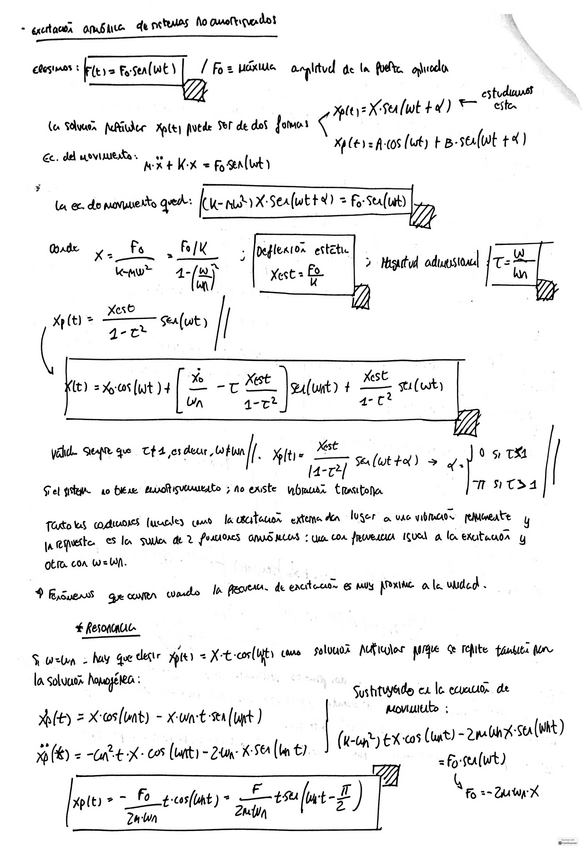 - Excitación armónica de sistemas no amortiguados
elegimos: F(t) = F₀·sen(ωt) / F₀ ≡ Máxima amplitud de la fuerza aplicada
la solución particular Xp(t) puede ser de dos formas
Xp(t) = X·sen(ωt + α) ← estudiamos esta
Xp(t) = A·cos(ωt) + B·sen(ωt + α)
Ec. del movimiento: M·ẍ + K·x = F₀·sen(ωt)
la ec. de movimiento queda: (K - Mω²) X·sen(ωt + α) = F₀·sen(ωt)
donde X = F₀/(K - Mω²) = (F₀/K)/(1 - (ω/ωn)²) ; Deflexión estática Xest = F₀/K ; Magnitud adimensional: τ = ω/ωn
Xp(t) = Xest/(1 - τ²) sen(ωt) //
X(t) = X₀·cos(ωt) + [ẋ₀/ωn - τ Xest/(1 - τ²)] sen(ωnt) + Xest/(1 - τ²) sen(ωt)
válida siempre que τ ≠ 1, es decir, ω ≠ ωn //. Xp(t) = Xest/|1 - τ²| sen(ωt + α) → α = { 0 si τ<1
-π si τ>1 //
Si el sistema no tiene amortiguamiento; no existe vibración transitoria
Tanto las condiciones iniciales como la excitación externa dan lugar a una vibración permanente y
la respuesta es la suma de 2 funciones armónicas: una con frecuencia igual a la excitación y
otra con ω = ωn.
Fenómenos que ocurren cuando la frecuencia de excitación es muy próxima a la unidad.
* Resonancia
Si ω = ωn - hay que elegir Xp(t) = X·t·cos(ωnt) como solución particular porque se repite también con
la solución homogénea:
ẋp(t) = X·cos(ωnt) - X·ωn·t·sen(ωnt)
ẍp(t) = -ωn²·t·X·cos(ωnt) - 2·ωn·X·sen(ωnt)
Sustituyendo en la ecuación de
movimiento:
(K - ωn²) tX·cos(ωnt) - 2MωnX·sen(ωnt)
= F₀·sen(ωt)
F₀ = -2Mωn·X
Xp(t) = - F₀/(2M·ωn) t·cos(ωnt) = F/(2Mωn) t·sen(ωn·t - π/2)